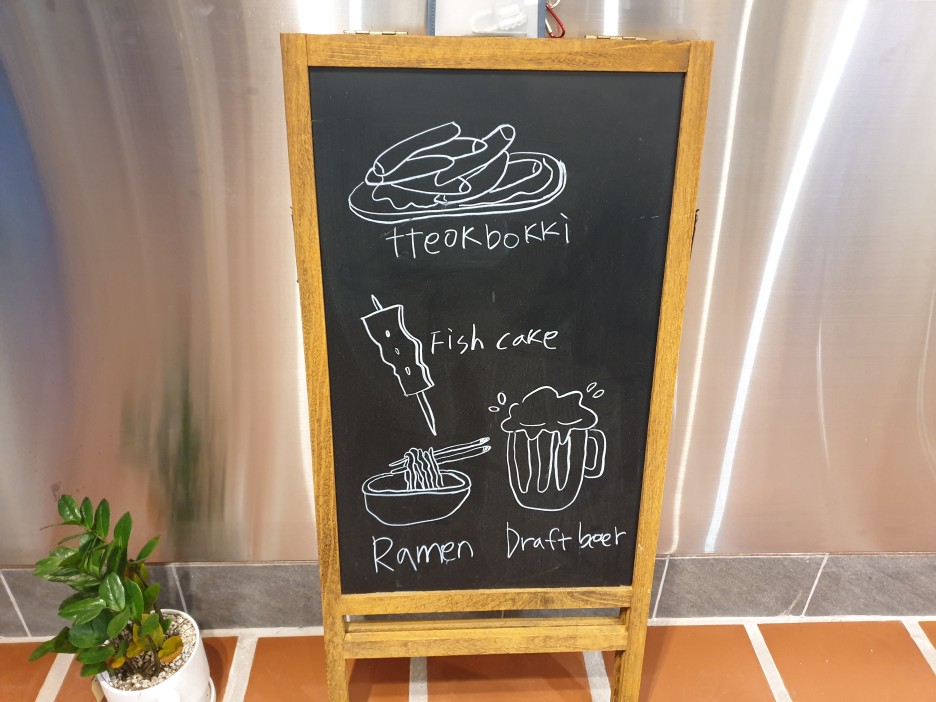 tteokbokki
Fish cake
Ramen
Draft beer